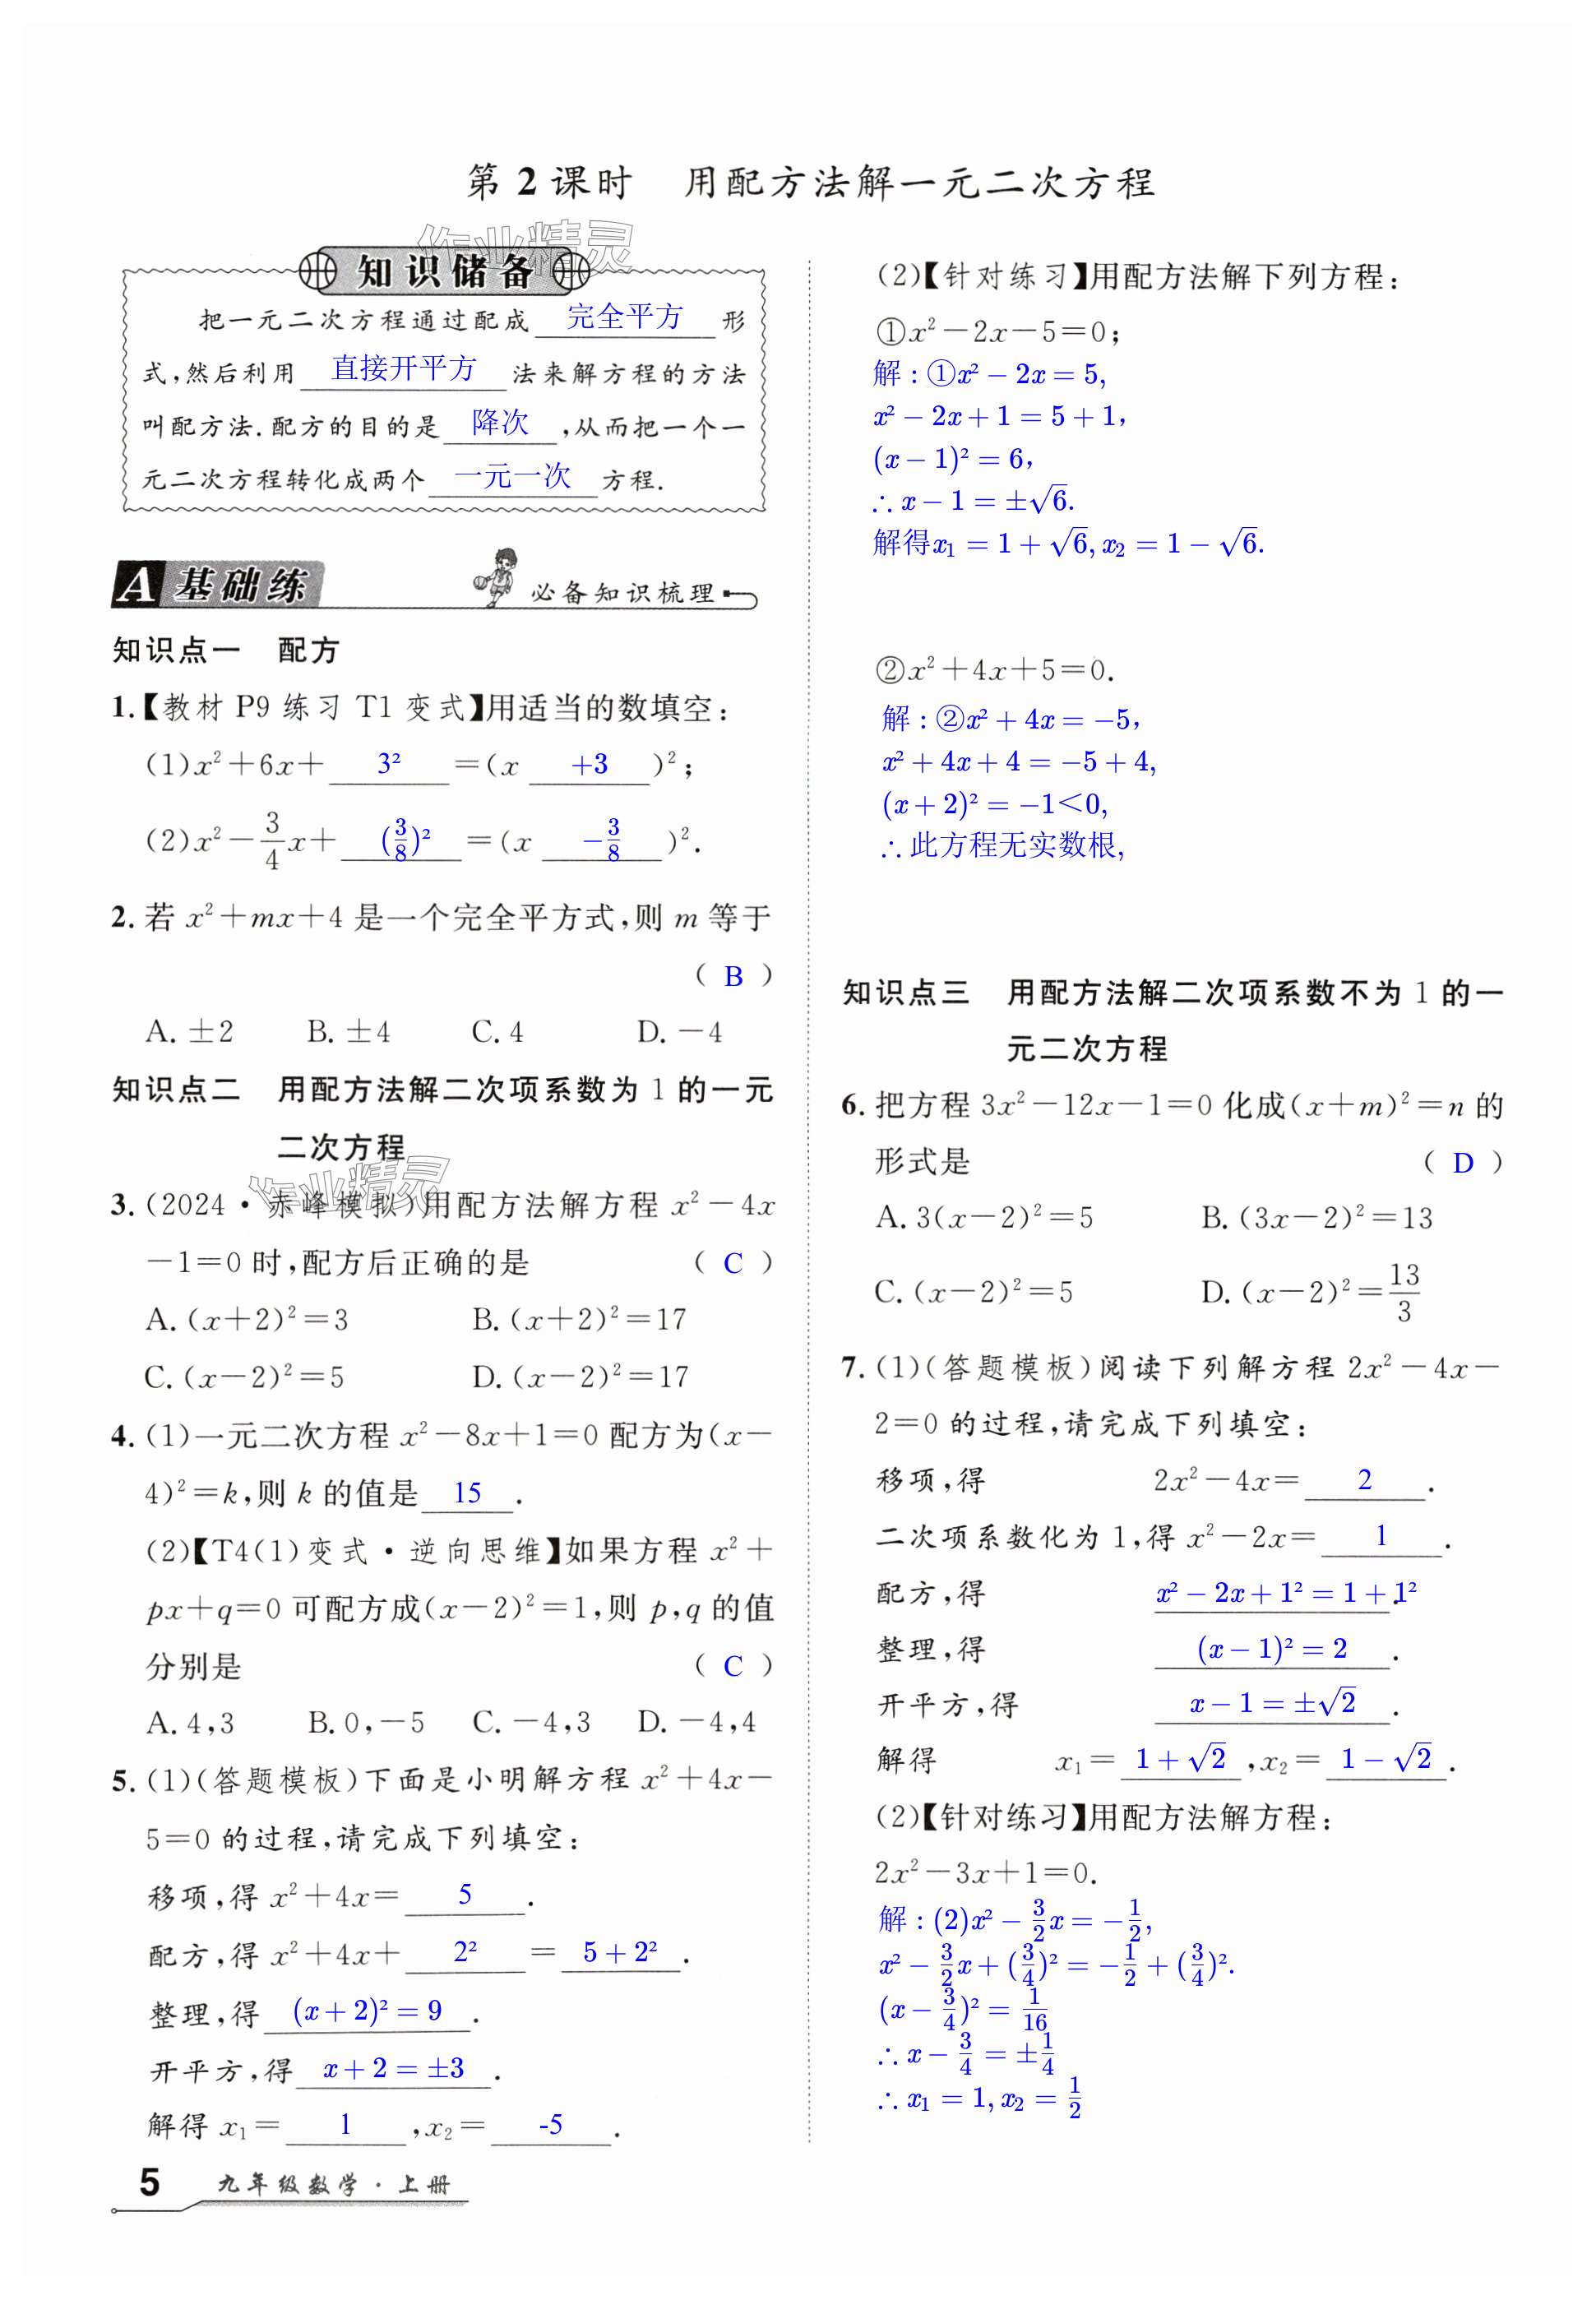 第 2 课时　用配方法解一元二次方程
作业精灵
知识储备
把一元二次方程通过配成 完全平方 形
式,然后利用 直接开平方 法来解方程的方法
叫配方法.配方的目的是 降次 ,从而把一个一
元二次方程转化成两个 一元一次 方程.
A 基础练　必备知识梳理
知识点一　配方
1.【教材 P9 练习 T1 变式】用适当的数填空:
(1)x²+6x+ 3² =(x +3 )²;
(2)x²-3/4x+ (3/8)² =(x -3/8 )².
2. 若 x²+mx+4 是一个完全平方式,则 m 等于
( B )
A. ±2　B. ±4　C. 4　D. -4
知识点二　用配方法解二次项系数为 1 的一元
二次方程
作业精灵
3. (2024·赤峰模拟)用配方法解方程 x²-4x
-1=0 时,配方后正确的是 ( C )
A. (x+2)²=3　B. (x+2)²=17
C. (x-2)²=5　D. (x-2)²=17
4. (1)一元二次方程 x²-8x+1=0 配方为(x-
4)²=k,则 k 的值是 15 .
(2)【T4(1)变式·逆向思维】如果方程 x²+
px+q=0 可配方成(x-2)²=1,则 p,q 的值
分别是 ( C )
A. 4,3　B. 0,-5　C. -4,3　D. -4,4
5. (1)(答题模板)下面是小明解方程 x²+4x-
5=0 的过程,请完成下列填空:
移项,得 x²+4x= 5 .
配方,得 x²+4x+ 2² = 5+2² .
整理,得 (x+2)²=9 .
开平方,得 x+2=±3 .
解得 x₁= 1 ,x₂= -5 .
5　九年级数学·上册
(2)【针对练习】用配方法解下列方程:
①x²-2x-5=0;
解:①x²-2x=5,
x²-2x+1=5+1,
(x-1)²=6,
∴x-1=±√6.
解得x₁=1+√6,x₂=1-√6.
②x²+4x+5=0.
解:②x²+4x=-5,
x²+4x+4=-5+4,
(x+2)²=-1<0,
∴此方程无实数根,
知识点三　用配方法解二次项系数不为 1 的一
元二次方程
6. 把方程 3x²-12x-1=0 化成(x+m)²=n 的
形式是 ( D )
A. 3(x-2)²=5　B. (3x-2)²=13
C. (x-2)²=5　D. (x-2)²=13/3
7. (1)(答题模板)阅读下列解方程 2x²-4x-
2=0 的过程,请完成下列填空:
移项,得 2x²-4x= 2 .
二次项系数化为 1,得 x²-2x= 1 .
配方,得 x²-2x+1²=1+1² .
整理,得 (x-1)²=2 .
开平方,得 x-1=±√2 .
解得 x₁= 1+√2 ,x₂= 1-√2 .
(2)【针对练习】用配方法解方程:
2x²-3x+1=0.
解:(2)x²-3/2x=-1/2,
x²-3/2x+(3/4)²=-1/2+(3/4)².
(x-3/4)²=1/16
∴x-3/4=±1/4
∴x₁=1,x₂=1/2